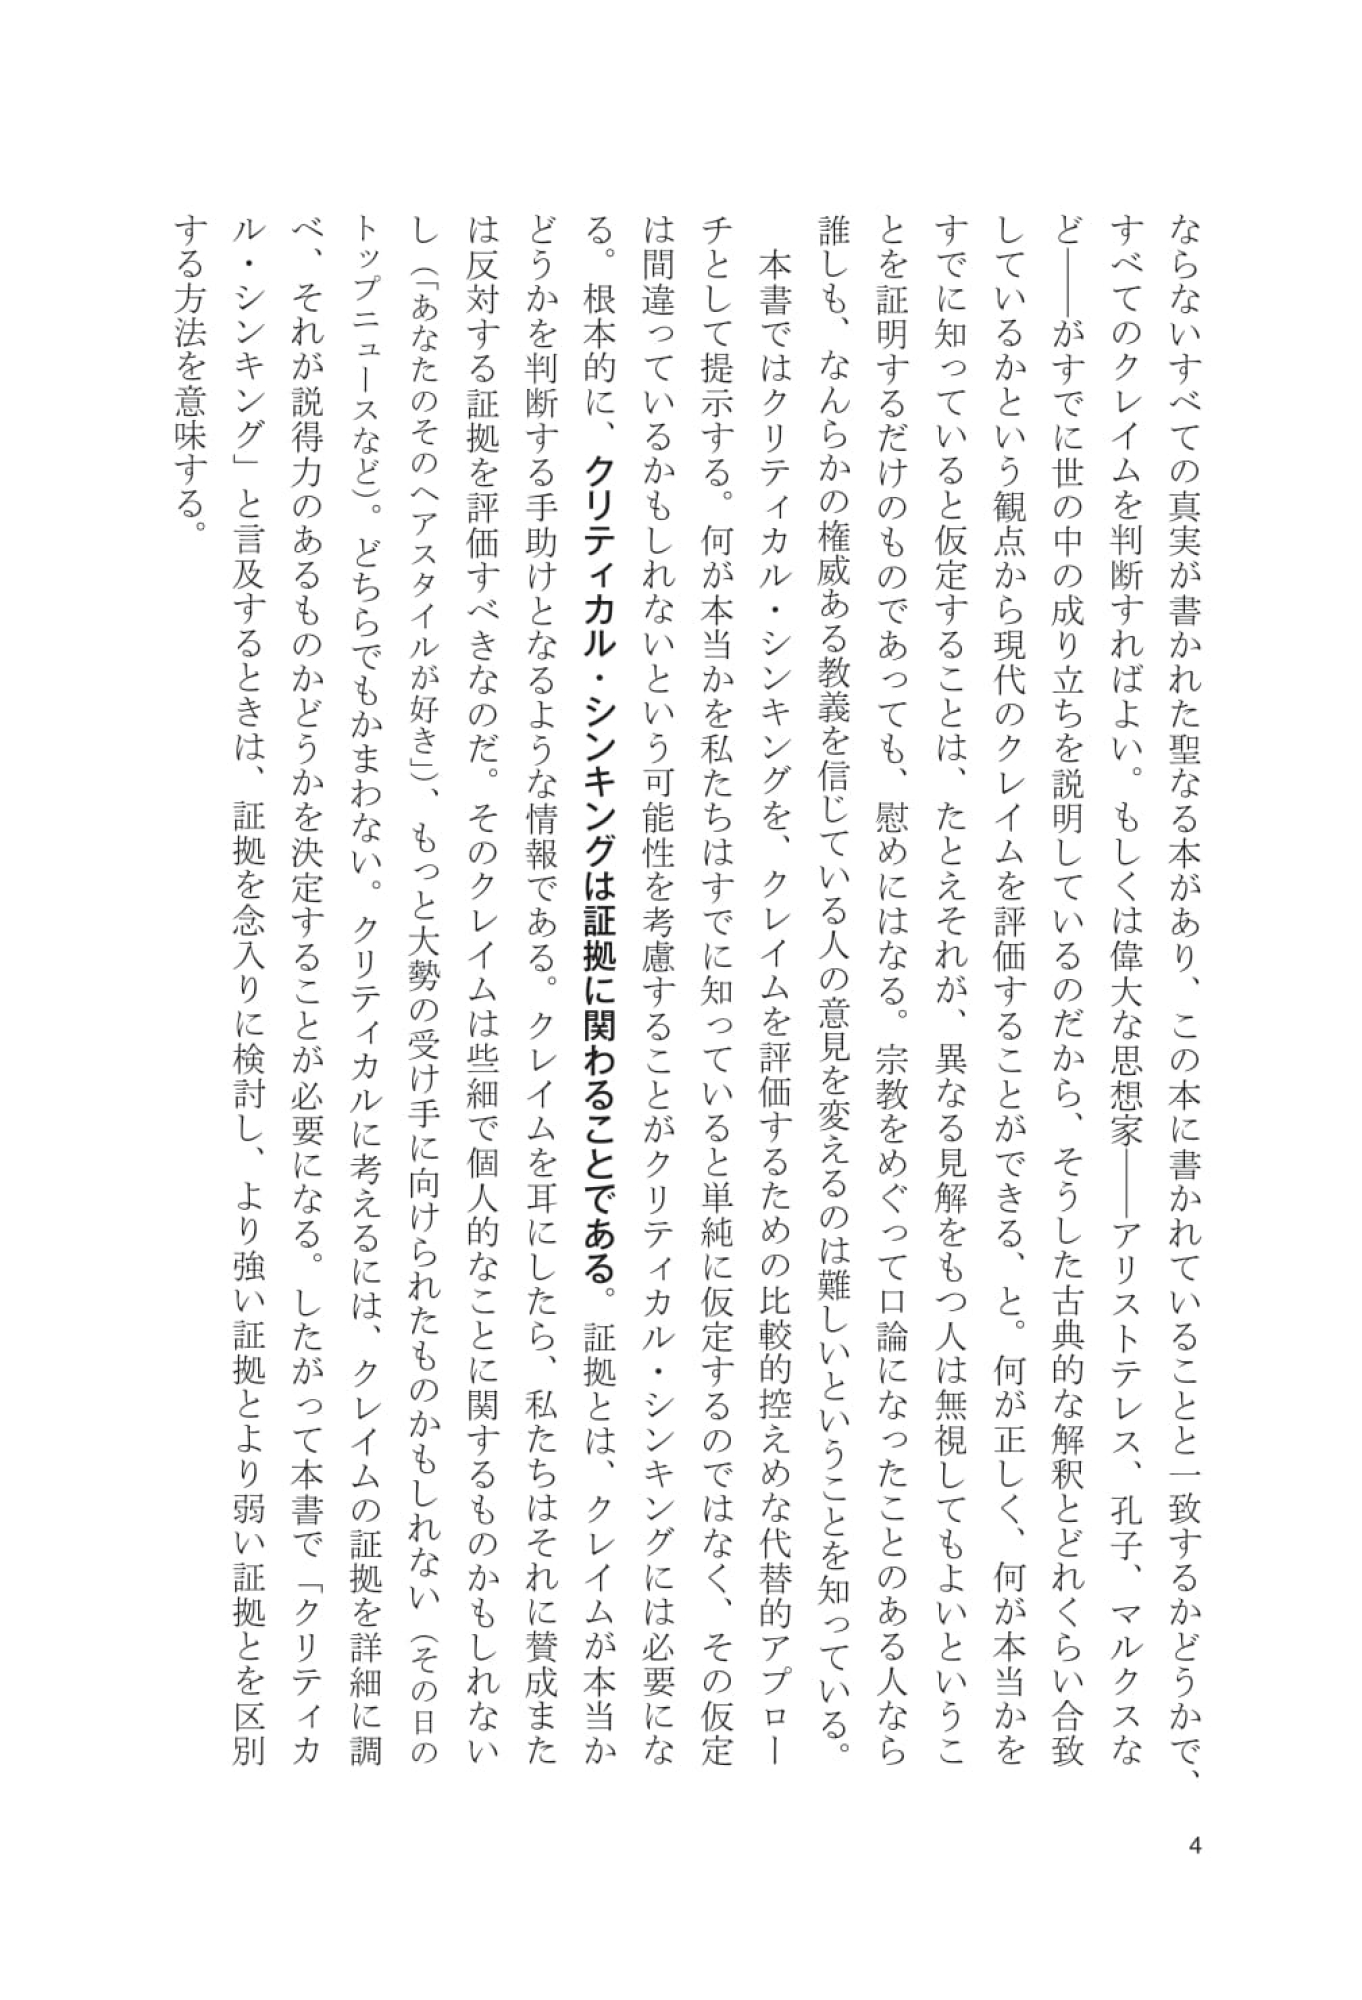 ならないすべての真実が書かれた聖なる本があり、この本に書かれていることと一致するかどうかで、
すべてのクレイムを判断すればよい。もしくは偉大な思想家――アリストテレス、孔子、マルクスな
ど――がすでに世の中の成り立ちを説明しているのだから、そうした古典的な解釈とどれくらい合致
しているかという観点から現代のクレイムを評価することができる、と。何が正しく、何が本当かを
すでに知っていると仮定することは、たとえそれが、異なる見解をもつ人は無視してもよいというこ
とを証明するだけのものであっても、慰めにはなる。宗教をめぐって口論になったことのある人なら
誰しも、なんらかの権威ある教義を信じている人の意見を変えるのは難しいということを知っている。
本書ではクリティカル・シンキングを、クレイムを評価するための比較的控えめな代替的アプロー
チとして提示する。何が本当かを私たちはすでに知っていると単純に仮定するのではなく、その仮定
は間違っているかもしれないという可能性を考慮することがクリティカル・シンキングには必要にな
る。根本的に、クリティカル・シンキングは証拠に関わることである。証拠とは、クレイムが本当か
どうかを判断する手助けとなるような情報である。クレイムを耳にしたら、私たちはそれに賛成また
は反対する証拠を評価すべきなのだ。そのクレイムは些細で個人的なことに関するものかもしれない
し（「あなたのそのヘアスタイルが好き」）、もっと大勢の受け手に向けられたものかもしれない（その日の
トップニュースなど）。どちらでもかまわない。クリティカルに考えるには、クレイムの証拠を詳細に調
べ、それが説得力のあるものかどうかを決定することが必要になる。したがって本書で「クリティカ
ル・シンキング」と言及するときは、証拠を念入りに検討し、より強い証拠とより弱い証拠とを区別
する方法を意味する。
4